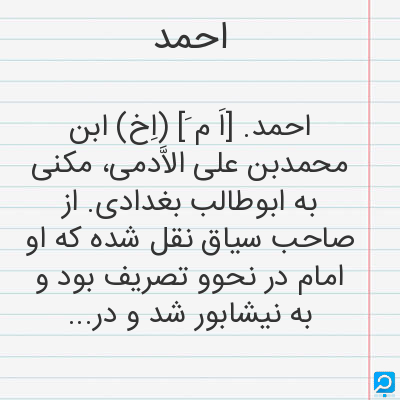 احمد
احمد. [اَ م َ] (اِخ) ابن
محمدبن علی الاَّدمی، مکنی
به ابوطالب بغدادی. از
صاحب سیاق نقل شده که او
امام در نحوو تصریف بود و
به نیشابور شد و در...